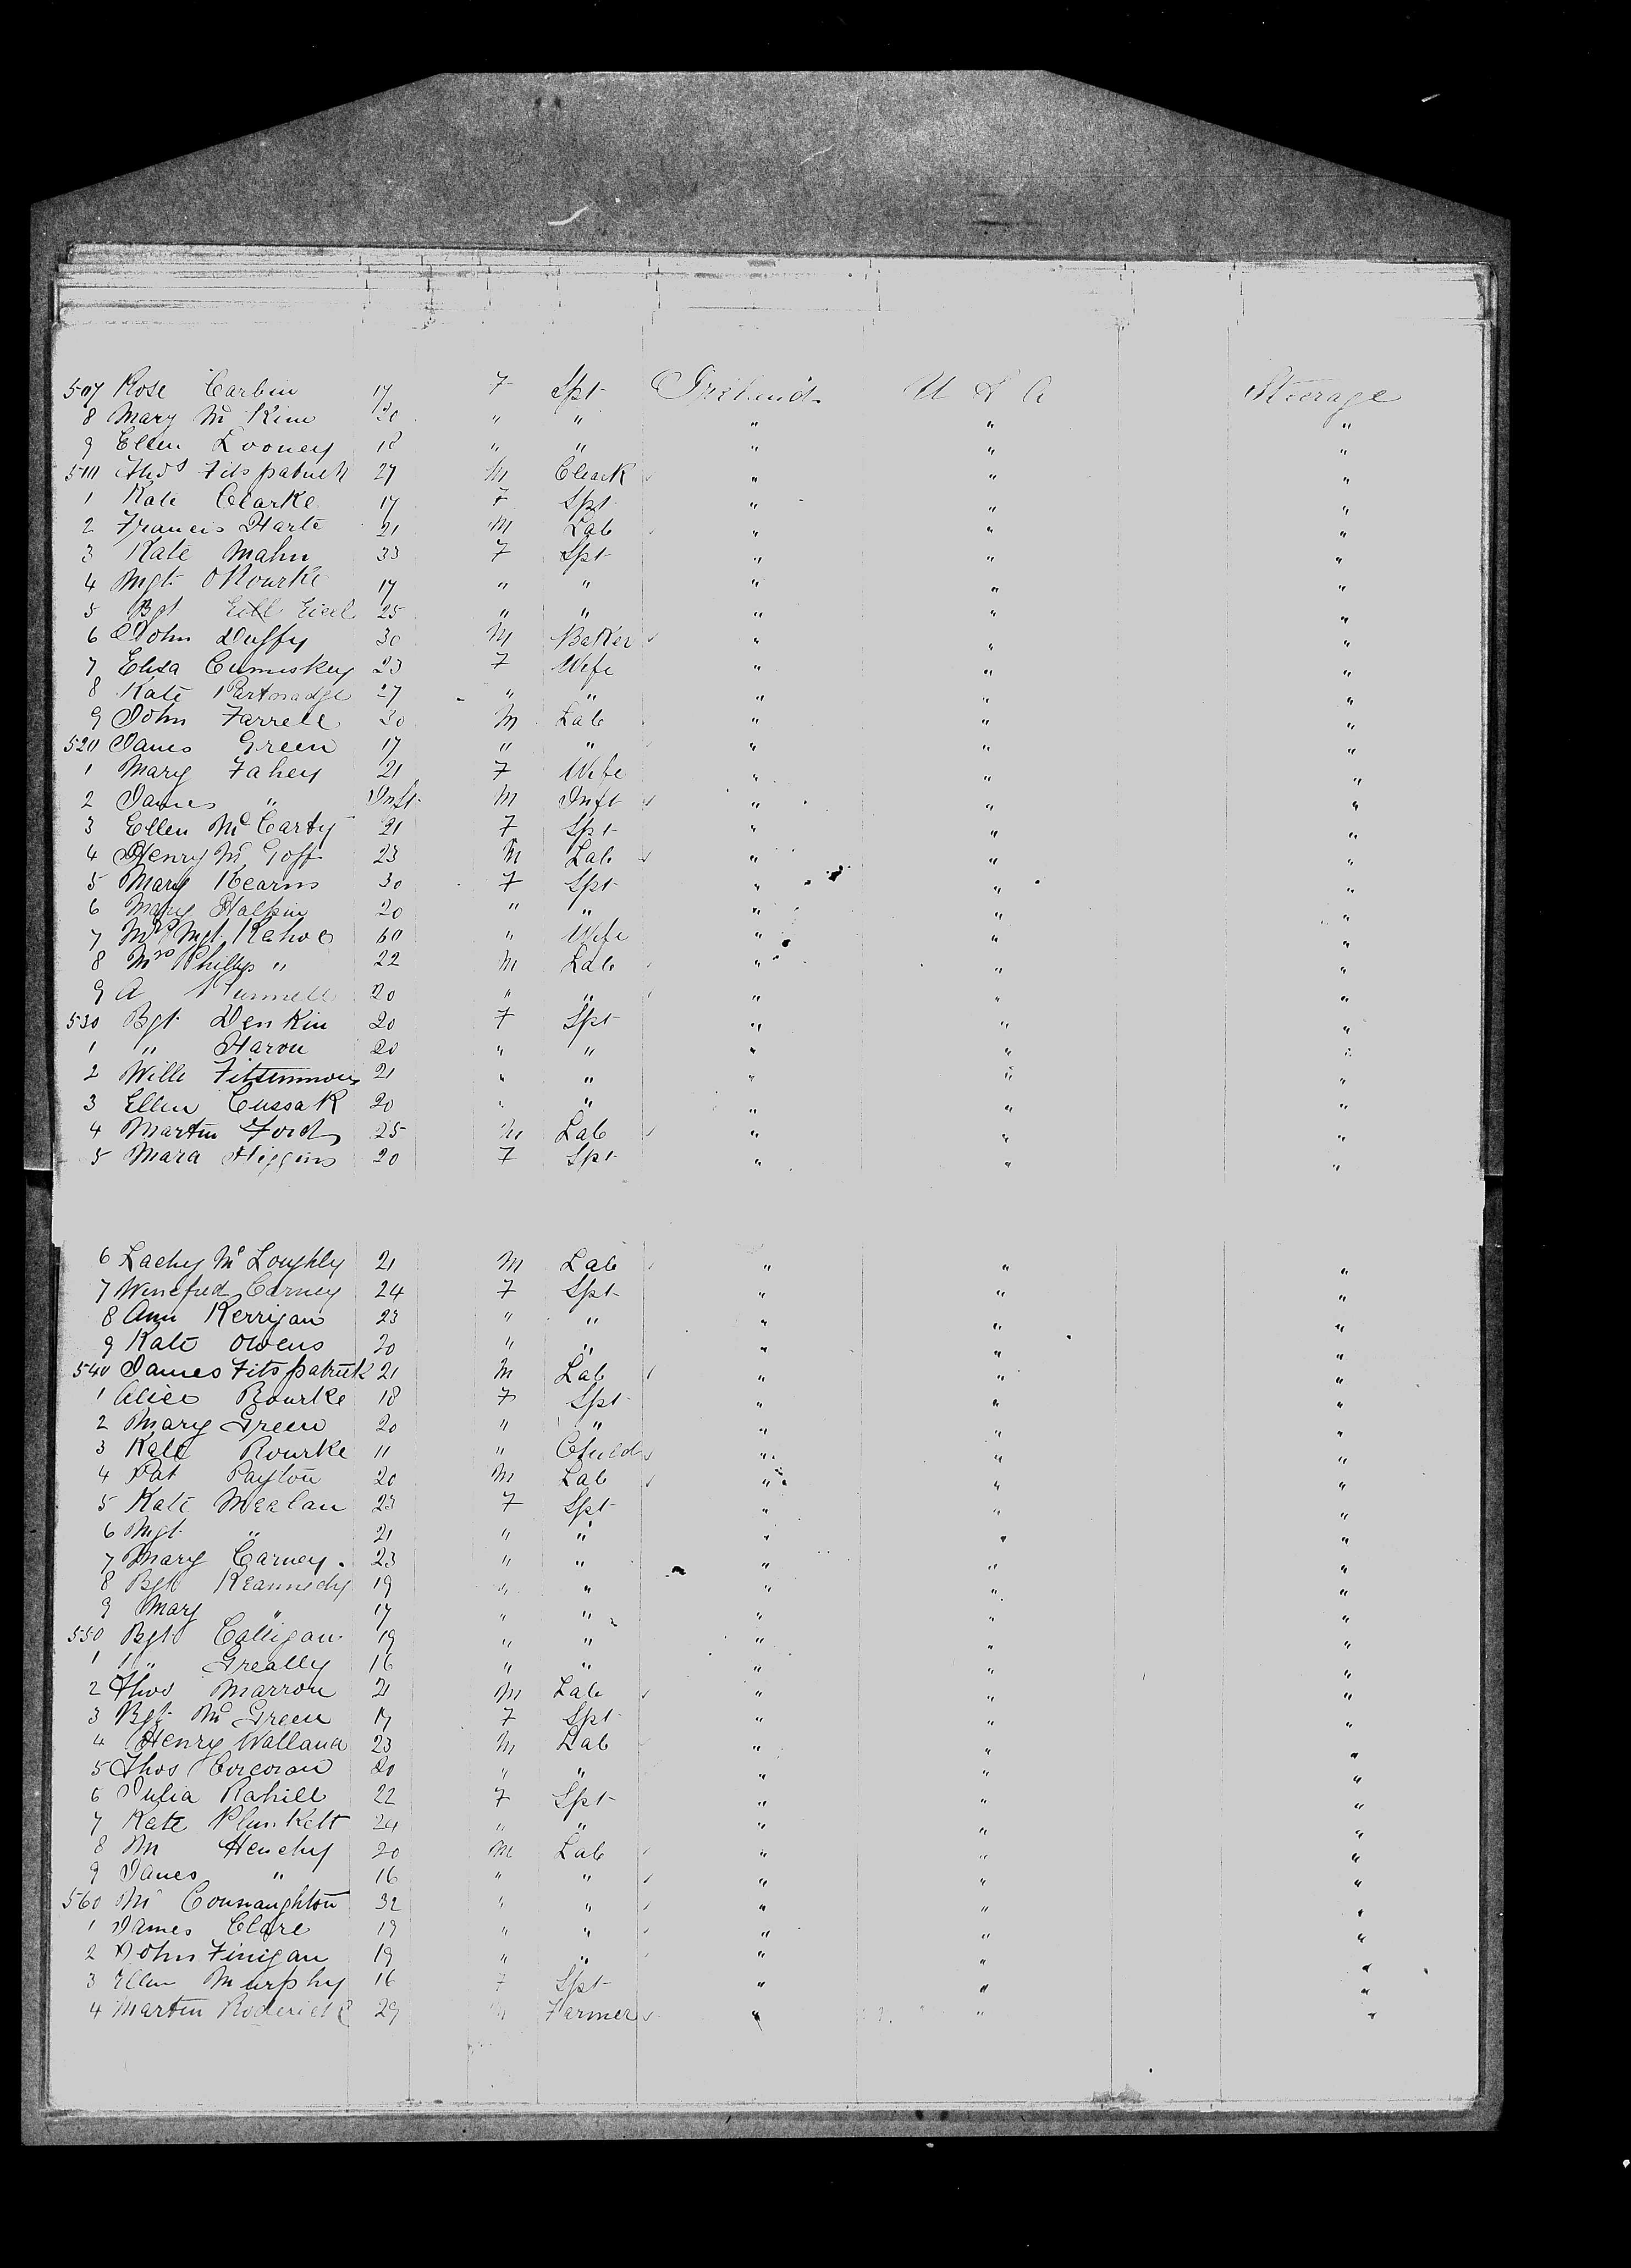 507 Rose Carbin 17 F Spt Ireland U S A Steerage
8 Mary Mc Kim 20 " " " " "
9 Ellen Looney 18 " " " " "
510 Thos Fitspatrick 27 M Cleark " " "
1 Kate Clarke 17 F Spt " " "
2 Francis Harte 21 M Lab " " "
3 Kate Mahn 33 F Spt " " "
4 Mgt ORourke 17 " " " " "
5 Bgt 25 " " " " "
6 John Duffy 30 M Baker " " "
7 Elisa Cumiskey 23 F Wife " " "
8 Kate Partnadge 27 " " " " "
9 John Farrell 30 M Lab " " "
520 James Green 17 " " " " "
1 Mary Fahey 21 F Wife " " "
2 James " Inft M Inft " " "
3 Ellen Mc Carty 21 F Spt " " "
4 Henry Mc Goff 23 M Lab " " "
5 Mary Kearns 30 F Spt " " "
6 Mary Halpin 20 " " " " "
7 Mrs Mgt Kehoe 60 " Wife " " "
8 Mrs Phillip " 22 M Lab " " "
9 A 20 " " " " "
530 Bgt Denkin 20 F Spt " " "
1 " Haron 20 " " " " "
2 Wille Fitsimmons 21 " " " " "
3 Ellen Cussak 20 " " " " "
4 Martin Ford 25 M Lab " " "
5 Mara Higgins 20 F Spt " " "
6 Lachy Mc Loughly 21 M Lab " " "
7 Winefred Carney 24 F Spt " " "
8 Ann Kerrigan 23 " " " " "
9 Kate Owens 20 " " " " "
540 James Fitspatrick 21 M Lab " " "
1 Alice Rourke 18 F Spt " " "
2 Mary Green 20 " " " " "
3 Kate Rourke 11 " Child " " "
4 Pat Payton 20 M Lab " " "
5 Kate Mealan 23 F Spt " " "
6 Mgt " 21 " " " " "
7 Mary Carney 23 " " " " "
8 Bgt Keannedy 19 " " " " "
9 Mary " 17 " " " " "
550 Bgt Calligan 19 " " " " "
1 " Greally 16 " " " " "
2 Thos Marron 21 M Lab " " "
3 Bgt Mc Green 17 F Spt " " "
4 Henry Walland 23 M Lab " " "
5 Thos Corcoran 20 " " " " "
6 Julia Rahill 22 F Spt " " "
7 Kate Plunkett 24 " " " " "
8 Mr Henehy 20 M Lab " " "
9 James " 16 " " " " "
560 Mr Connaughton 32 " " " " "
1 James Clare 19 " " " " "
2 John Finigan 19 " " " " "
3 Ellen Murphy 16 F Spt " " "
4 Martin Roderick 29 M Farmer " " "